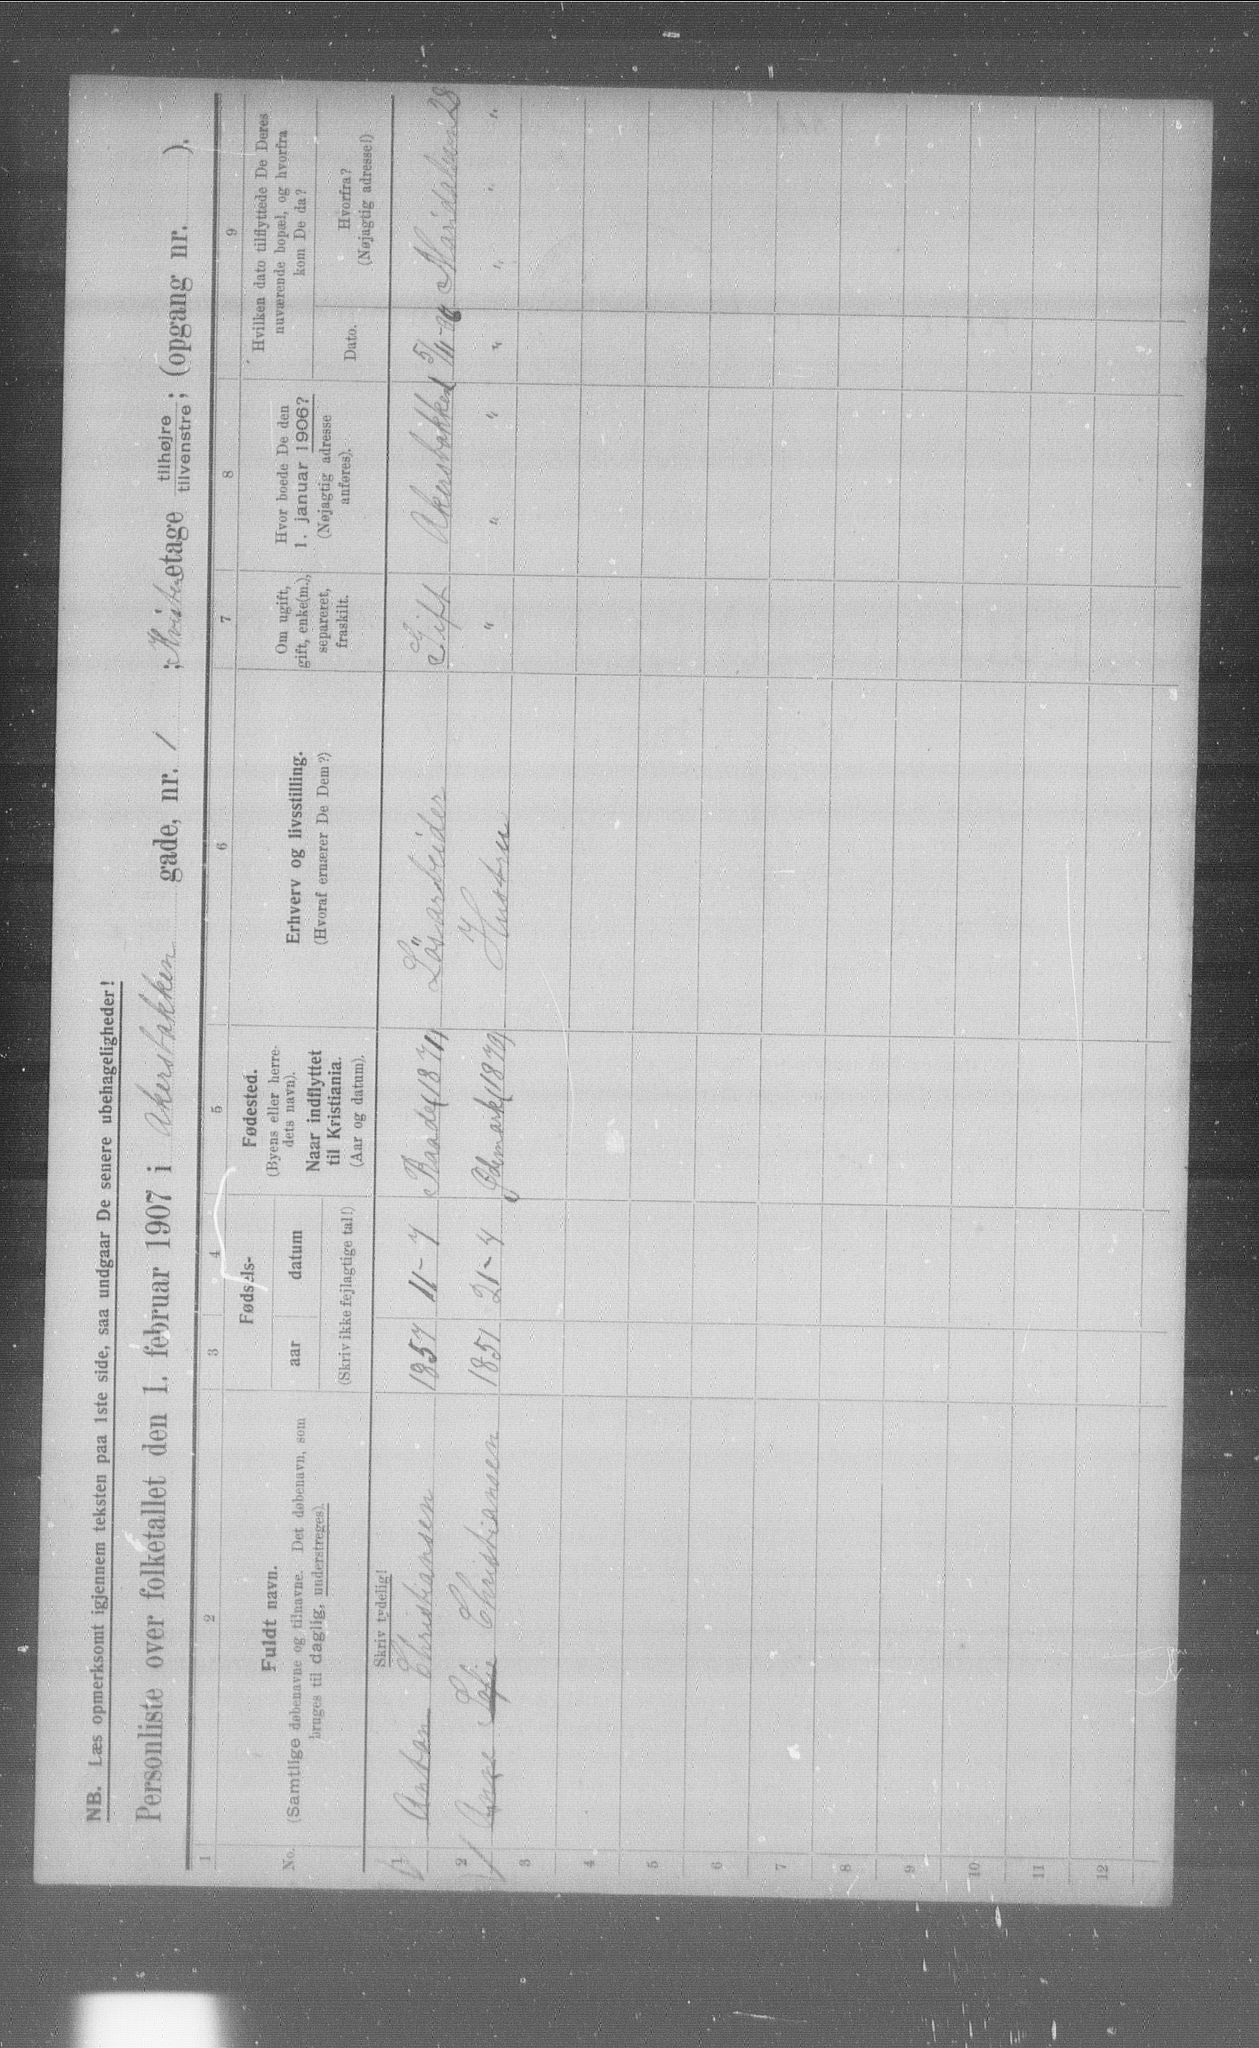 NB. Læs opmerksomt igjennem teksten paa 1ste side, saa undgaar De senere ubehageligheder!
Personliste over folketallet den 1. februar 1907 i Akersbakken gade, nr. 1 ; Kvisten etage tilhøjre / tilvenstre ; (opgang nr. ).
1 2 3 4 5 6 7 8 9
No.
Fuldt navn.
(Samtlige døbenavne og tilnavne. Det døbenavn, som
bruges til daglig, understreges).
Fødsels-
aar datum
(Skriv ikke fejlagtige tal!)
Fødested.
(Byens eller herre-
dets navn).
Naar indflyttet
til Kristiania.
(Aar og datum).
Erhverv og livsstilling.
(Hvoraf ernærer De Dem?)
Om ugift,
gift, enke(m.),
separeret,
fraskilt.
Hvor boede De den
1. januar 1906?
(Nøjagtig adresse
anføres).
Hvilken dato tilflyttede De Deres
nuværende bopæl, og hvorfra
kom De da?
Dato.
Hvorfra?
(Nøjagtig adresse!)
Skriv tydelig!
1 Anton Christiansen 11-7 Raade (1874) Lösarbeider Gift Akersbakken 28
2 Sofie Christiansen 1851 (1879) Hustru " " " " " " "
3
4
5
6
7
8
9
10
11
12